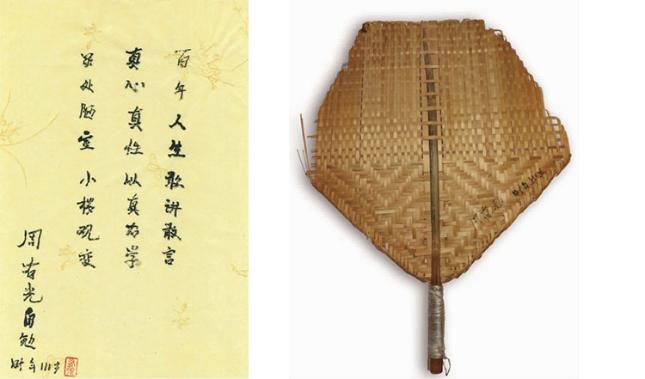 百年人生敢讲敢言
真心真性以真治学
虽处陋室小楼观变
周有光自勉
时年111岁